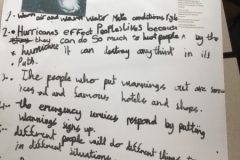 1. Warm air and warm water Make conditions right
2. Hurricanes effect PeoPles lives because
they can do so much to hurt people by the
hurricane it can destroy anything in its
Path.
3. The people who put warnings out are
and famous, hotels and shops.
4. the emergency services respond by putting
warnings signs up.
5. different people will do different things
in different situations.